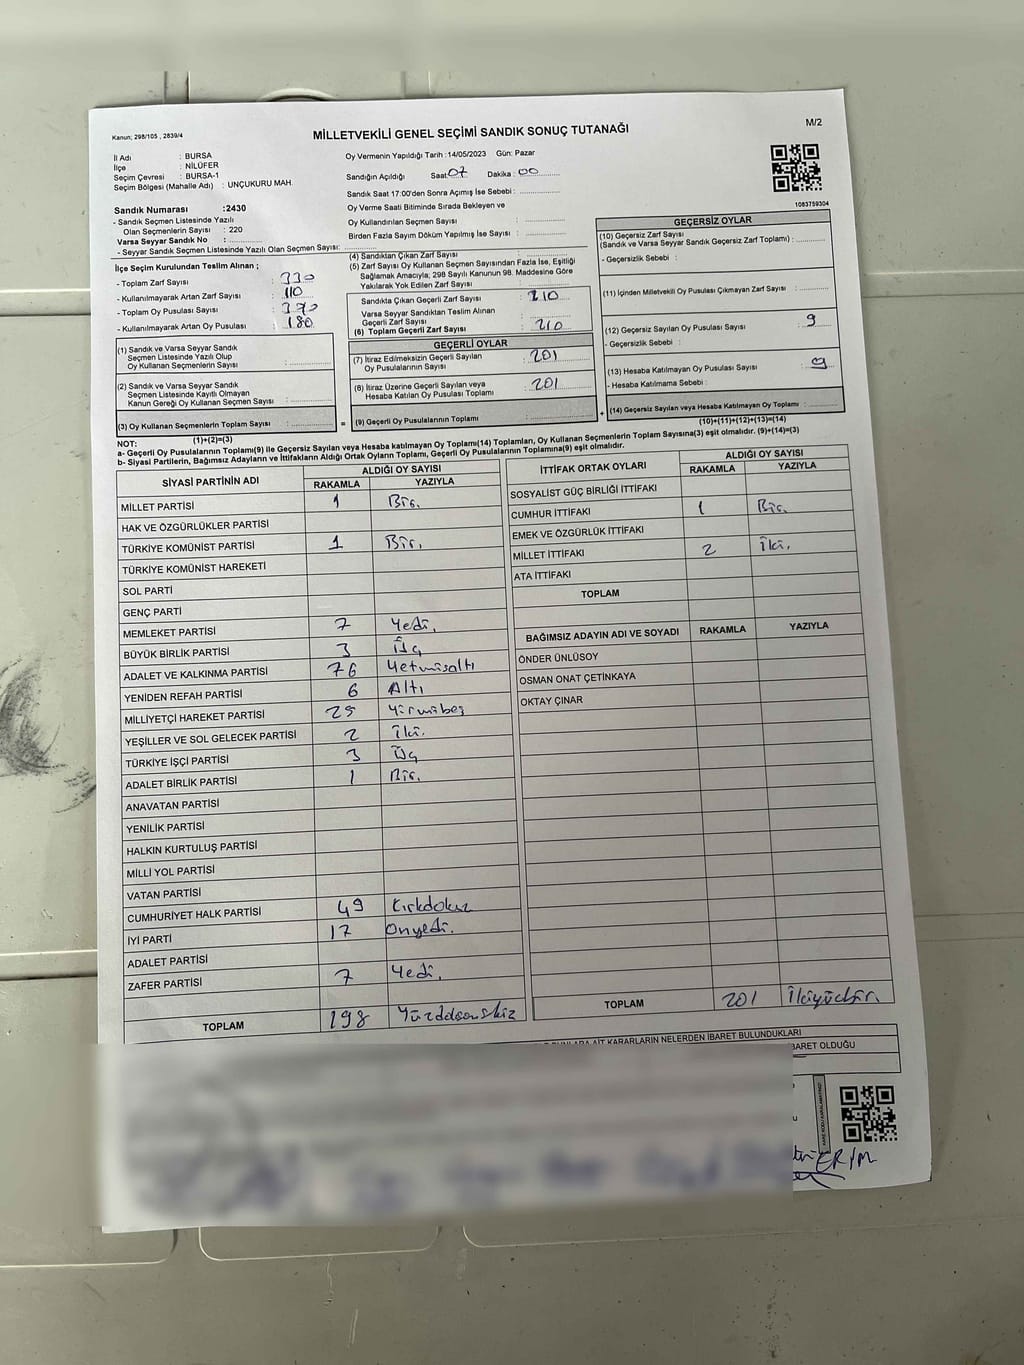 Kanun; 298/105 , 2839/4
MİLLETVEKİLİ GENEL SEÇİMİ SANDIK SONUÇ TUTANAĞI
M/2
İl Adı : BURSA
İlçe : NİLÜFER
Seçim Çevresi : BURSA-1
Seçim Bölgesi (Mahalle Adı) : UNÇUKURU MAH.
Oy Vermenin Yapıldığı Tarih :14/05/2023 Gün: Pazar
Sandığın Açıldığı Saat: 07 Dakika : 00
Sandık Saat 17:00'den Sonra Açımış İse Sebebi :
Oy Verme Saati Bitiminde Sırada Bekleyen ve
Oy Kullandırılan Seçmen Sayısı :
Birden Fazla Sayım Döküm Yapılmış İse Sayısı :
1083759304
Sandık Numarası :2430
- Sandık Seçmen Listesinde Yazılı
Olan Seçmenlerin Sayısı : 220
Varsa Seyyar Sandık No :
- Seyyar Sandık Seçmen Listesinde Yazılı Olan Seçmen Sayısı:
İlçe Seçim Kurulundan Teslim Alınan ;
- Toplam Zarf Sayısı : 330
- Kullanılmayarak Artan Zarf Sayısı : 110
- Toplam Oy Pusulası Sayısı : 370
- Kullanılmayarak Artan Oy Pusulası : 180
(1) Sandık ve Varsa Seyyar Sandık
Seçmen Listesinde Yazılı Olup
Oy Kullanan Seçmenlerin Sayısı :
(2) Sandık ve Varsa Seyyar Sandık
Seçmen Listesinde Kayıtlı Olmayan
Kanun Gereği Oy Kullanan Seçmen Sayısı :
(3) Oy Kullanan Seçmenlerin Toplam Sayısı :
(1)+(2)=(3)
(4) Sandıktan Çıkan Zarf Sayısı :
(5) Zarf Sayısı Oy Kullanan Seçmen Sayısından Fazla İse, Eşitliği
Sağlamak Amacıyla; 298 Sayılı Kanunun 98. Maddesine Göre
Yakılarak Yok Edilen Zarf Sayısı :
Sandıkta Çıkan Geçerli Zarf Sayısı : 210
Varsa Seyyar Sandıktan Teslim Alınan
Geçerli Zarf Sayısı :
(6) Toplam Geçerli Zarf Sayısı : 210
GEÇERLİ OYLAR
(7) İtiraz Edilmeksizin Geçerli Sayılan : 201
Oy Pusulalarının Sayısı
(8) İtiraz Üzerine Geçerli Sayılan veya
Hesaba Katılan Oy Pusulası Toplamı : 201
= (9) Geçerli Oy Pusulalarının Toplamı :
GEÇERSİZ OYLAR
(10) Geçersiz Zarf Sayısı
(Sandık ve Varsa Seyyar Sandık Geçersiz Zarf Toplamı) :
- Geçersizlik Sebebi :
(11) İçinden Milletvekili Oy Pusulası Çıkmayan Zarf Sayısı:
(12) Geçersiz Sayılan Oy Pusulası Sayısı : 9
- Geçersizlik Sebebi :
(13) Hesaba Katılmayan Oy Pusulası Sayısı : 9
- Hesaba Katılmama Sebebi :
+ (14) Geçersiz Sayılan veya Hesaba Katılmayan Oy Toplamı :
(10)+(11)+(12)+(13)=(14)
NOT:
a- Geçerli Oy Pusulalarının Toplamı(9) ile Geçersiz Sayılan veya Hesaba katılmayan Oy Toplamı(14) Toplamları, Oy Kullanan Seçmenlerin Toplam Sayısına(3) eşit olmalıdır. (9)+(14)=(3)
b- Siyasi Partilerin, Bağımsız Adayların ve İttifakların Aldığı Ortak Oyların Toplamı, Geçerli Oy Pusulalarının Toplamına(9) eşit olmalıdır.
SİYASİ PARTİNİN ADI ALDIĞI OY SAYISI
RAKAMLA YAZIYLA
MİLLET PARTİSİ 1 Bir.
HAK VE ÖZGÜRLÜKLER PARTİSİ
TÜRKİYE KOMÜNİST PARTİSİ 1 Bir.
TÜRKİYE KOMÜNİST HAREKETİ
SOL PARTİ
GENÇ PARTİ
MEMLEKET PARTİSİ 7 Yedi.
BÜYÜK BİRLİK PARTİSİ 3 Üç
ADALET VE KALKINMA PARTİSİ 76 Yetmişaltı
YENİDEN REFAH PARTİSİ 6 Altı
MİLLİYETÇİ HAREKET PARTİSİ 25 Yirmibeş
YEŞİLLER VE SOL GELECEK PARTİSİ 2 İki.
TÜRKİYE İŞÇİ PARTİSİ 3 Üç
ADALET BİRLİK PARTİSİ 1 Bir.
ANAVATAN PARTİSİ
YENİLİK PARTİSİ
HALKIN KURTULUŞ PARTİSİ
MİLLİ YOL PARTİSİ
VATAN PARTİSİ
CUMHURİYET HALK PARTİSİ 49 Kırkdokuz
İYİ PARTİ 17 Onyedi.
ADALET PARTİSİ
ZAFER PARTİSİ 7 Yedi.
TOPLAM 198 Yüzddoanskiz
İTTİFAK ORTAK OYLARI ALDIĞI OY SAYISI
RAKAMLA YAZIYLA
SOSYALİST GÜÇ BİRLİĞİ İTTİFAKI
CUMHUR İTTİFAKI 1 Bir.
EMEK VE ÖZGÜRLÜK İTTİFAKI
MİLLET İTTİFAKI 2 İki.
ATA İTTİFAKI
TOPLAM
BAĞIMSIZ ADAYIN ADI VE SOYADI RAKAMLA YAZIYLA
ÖNDER ÜNLÜSOY
OSMAN ONAT ÇETİNKAYA
OKTAY ÇINAR
TOPLAM 201 İkiyüzbir.
AİT KARARLARIN NELERDEN İBARET BULUNDUKLARI
BARET OLDUĞU
ERİM